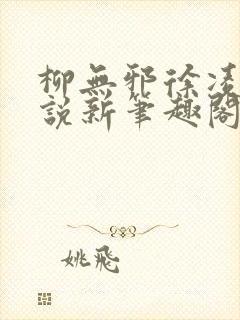 柳無邪徐凌
說新筆趣閣
姚飛